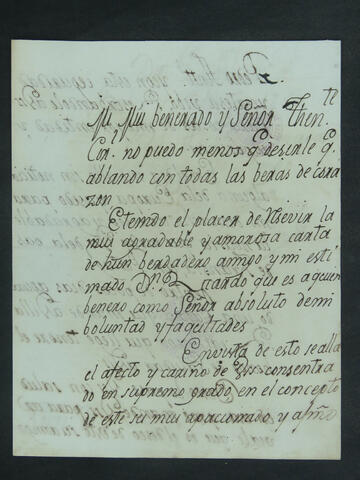 te
Mi Mui benerado y Señor Then.
Cor. no puedo menos q desirle q
ablando con todas las beras de cora
zon
Eteindo el placer de rsevir la
mui agradable y amorosa carta
de hun berdadero amigo y mi esti
mado Dn. que es a quien
benero como Señor absoluto demi
boluntad y facultades
En vista de esto se alla
el afecto y cariño de consentra
do en supremo grado en el concepto
de este su mui apacionado y